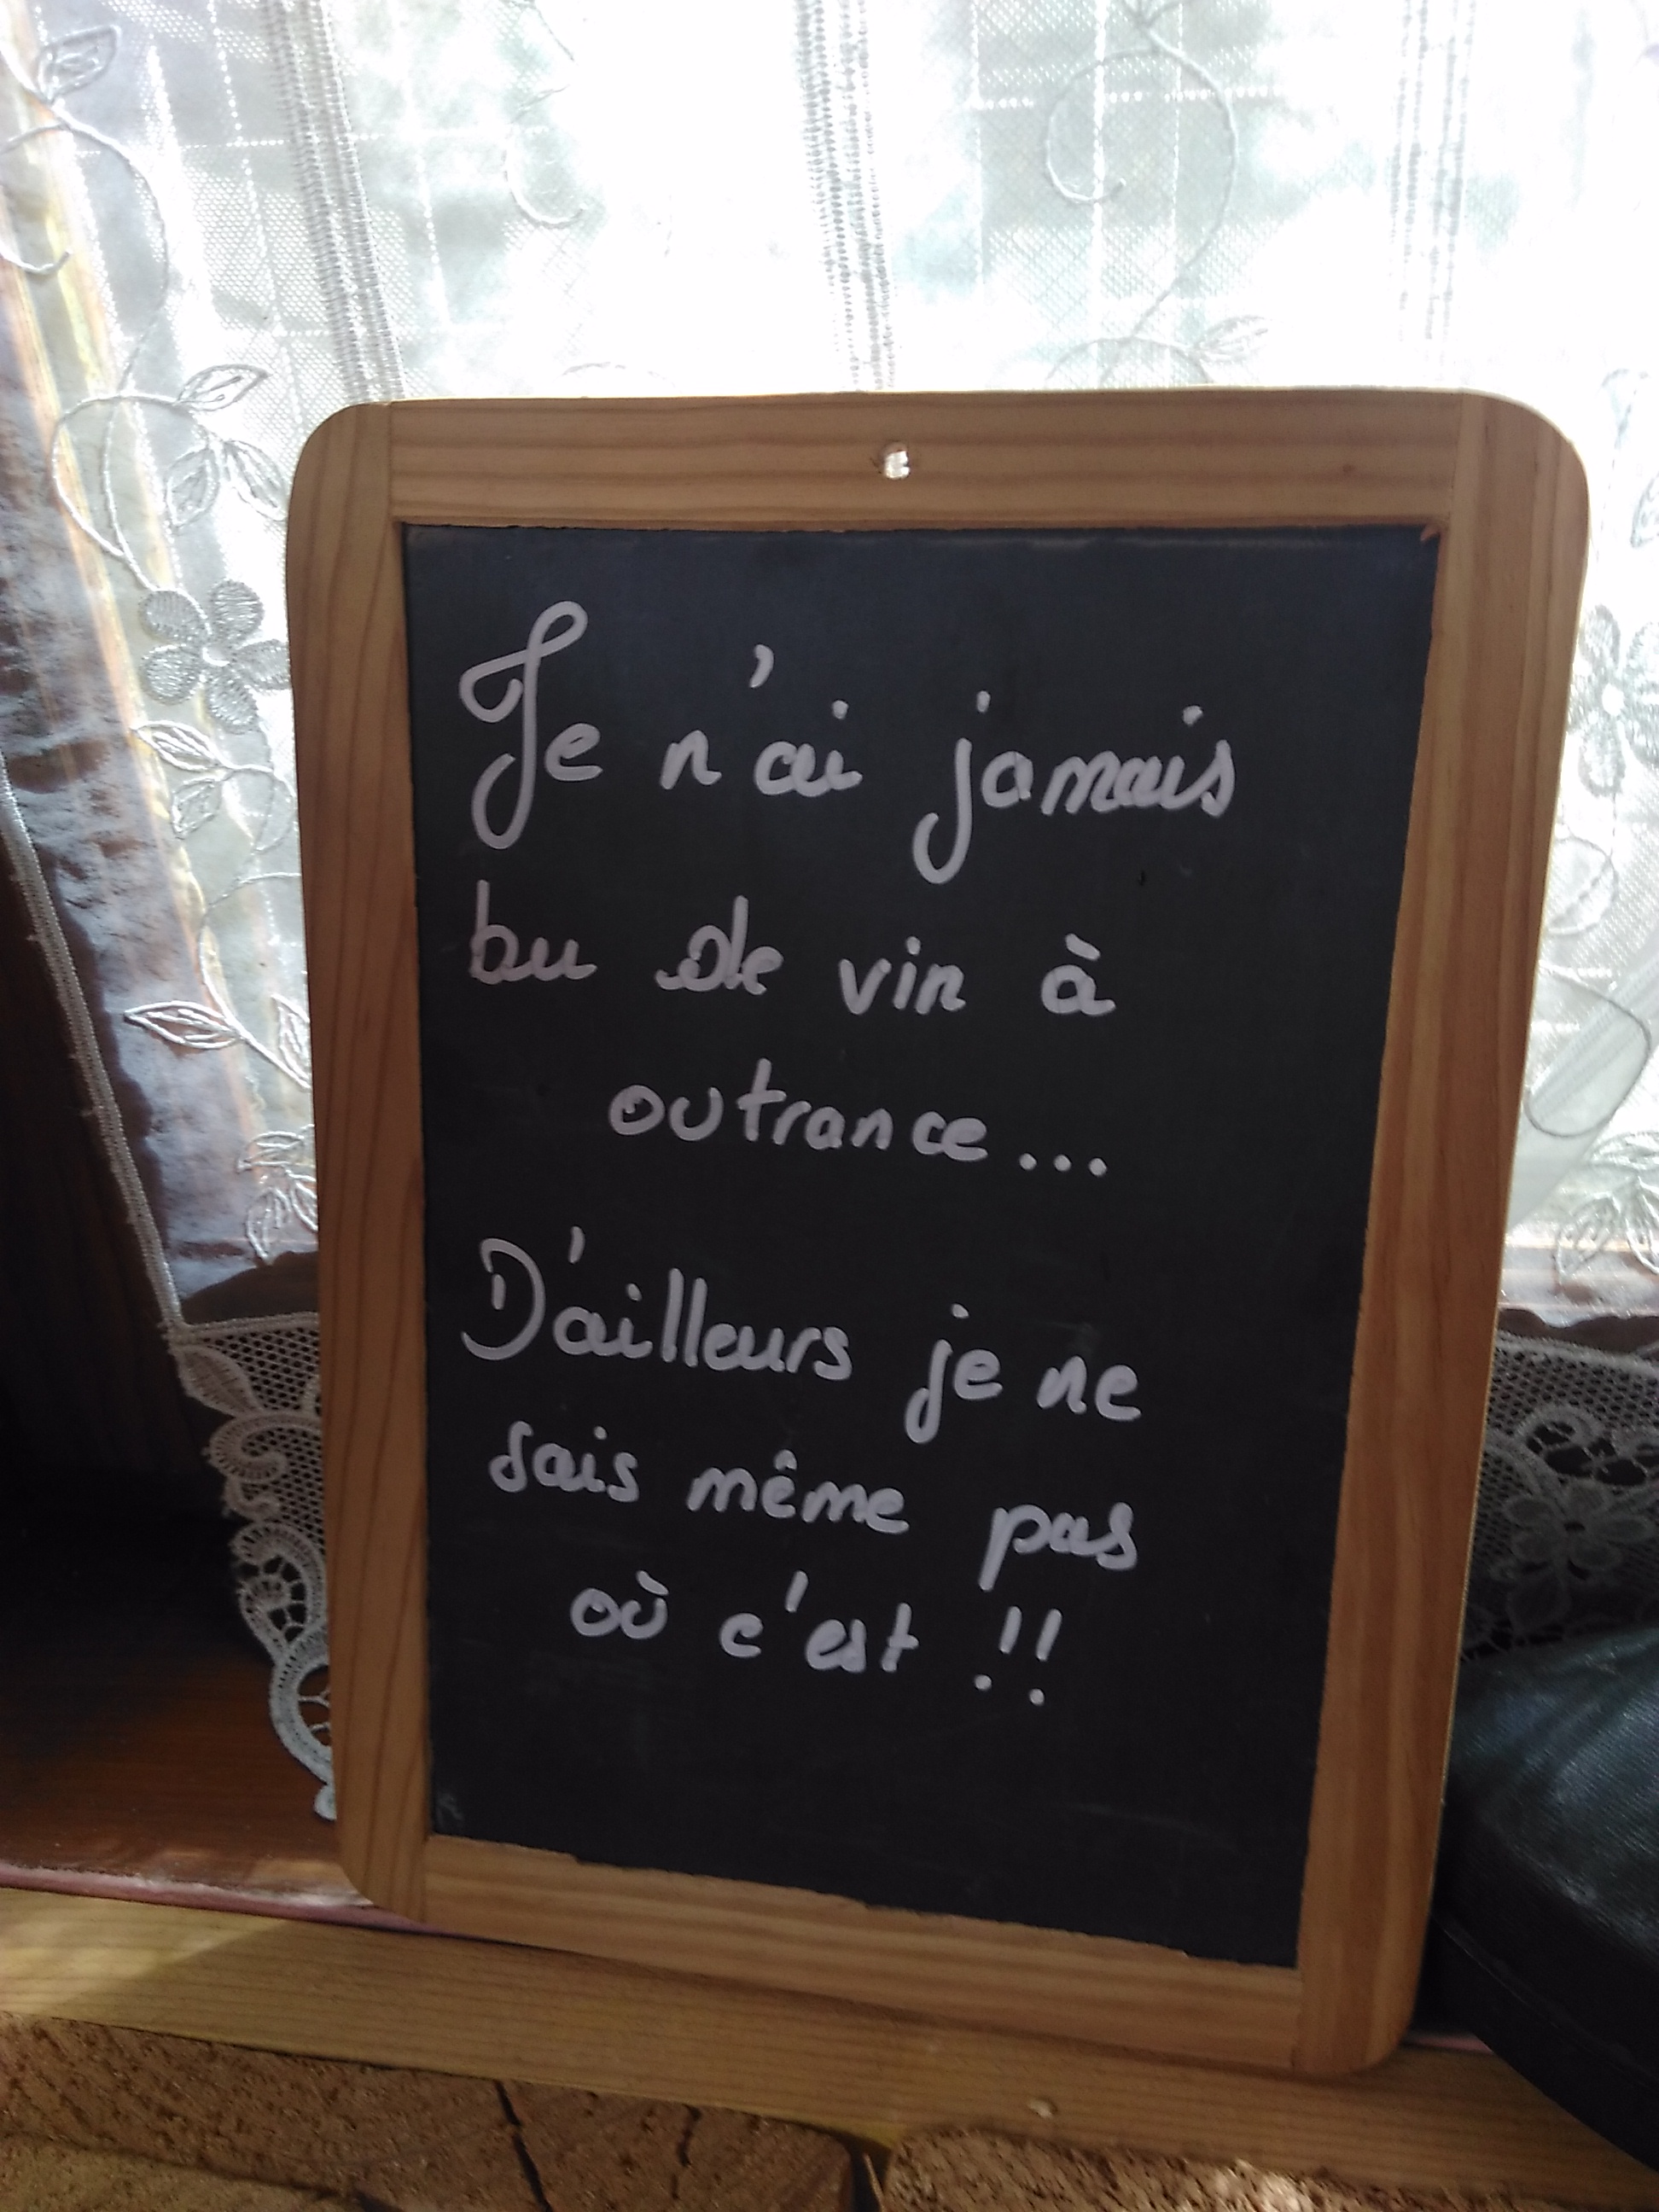 Je n'ai jamais
bu de vin à
outrance...
D'ailleurs je ne
sais même pas
où c'est !!